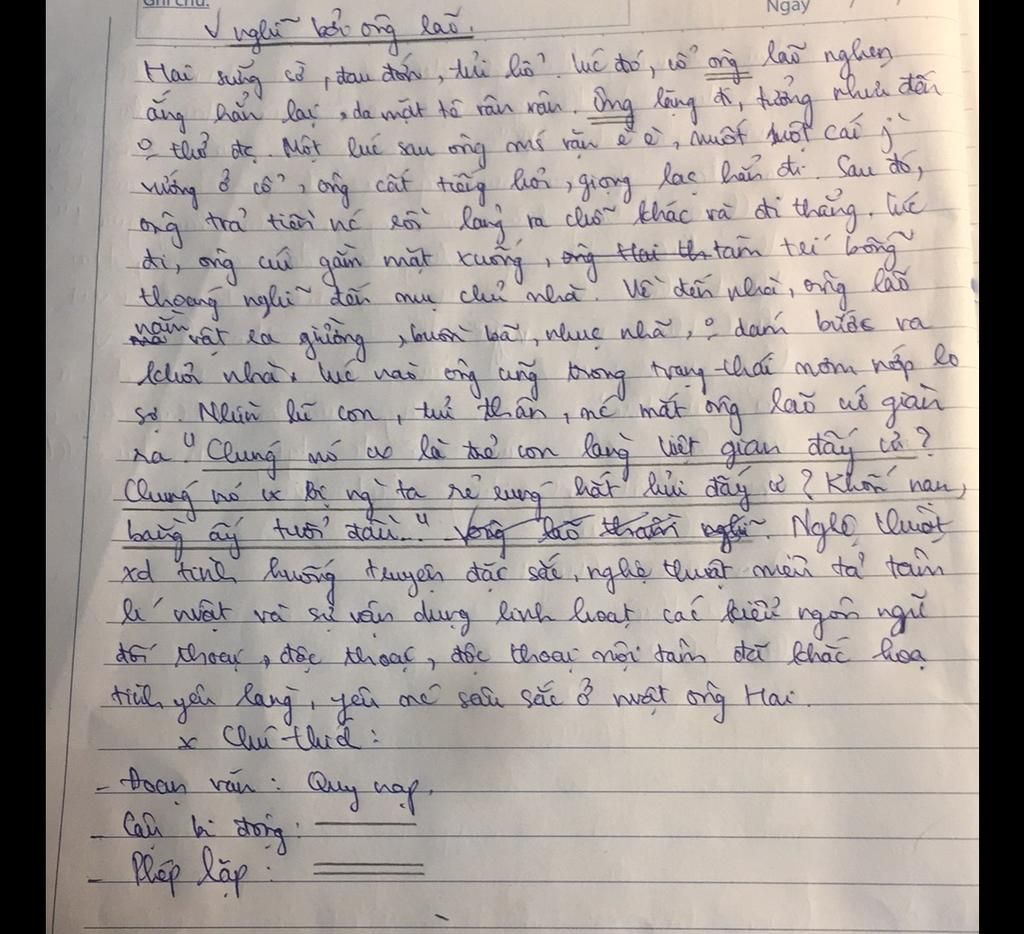 Ghi chú:
Ngày / /
√ nghĩ bởi ông lão.
Hai sững sờ, đau đớn, tủi hổ. Lúc đó, cổ ông lão nghẹn
ắng hẳn lại, da mặt tê rân rân. Ông lặng đi, tưởng như đến
o thở đc. Một lúc sau ông ms rặn è è, nuốt một cái j
vướng ở cổ, ông cất tiếng hỏi, giọng lạc hẳn đi. Sau đó,
ông trả tiền nc rồi lảng ra chỗ khác và đi thẳng. Lúc
đi, ông cúi gằm mặt xuống, ông Hai th tâm trí bỗng
thoáng nghĩ đến mụ chủ nhà. Về đến nhà, ông lão
nằm vật ra giường, buồn bã, nhục nhã, o dám bước ra
khỏi nhà. Lúc nào ông cũng trong trạng thái nơm nớp lo
sợ. Nhìn lũ con, tủi thân, nc mắt ông lão cứ giàn
ra "Chúng nó cx là trẻ con làng Việt gian đấy ư?
Chúng nó cx bị ng` ta rẻ rúng hắt hủi đấy ư? Khốn nạn,
bằng ấy tuổi đầu.." Nghệ thuật
xd tình huống truyện đặc sắc, nghệ thuật miêu tả tâm
lí nvật và sự vận dụng linh hoạt các kiểu ngôn ngữ
đối thoại, độc thoại, độc thoại nội tâm đã khắc hoạ
tình yêu làng, yêu nc sâu sắc ở nvật ông Hai.
x Chú thích:
- Đoạn văn: Quy nạp.
- Câu bị động:
- Phép lặp: